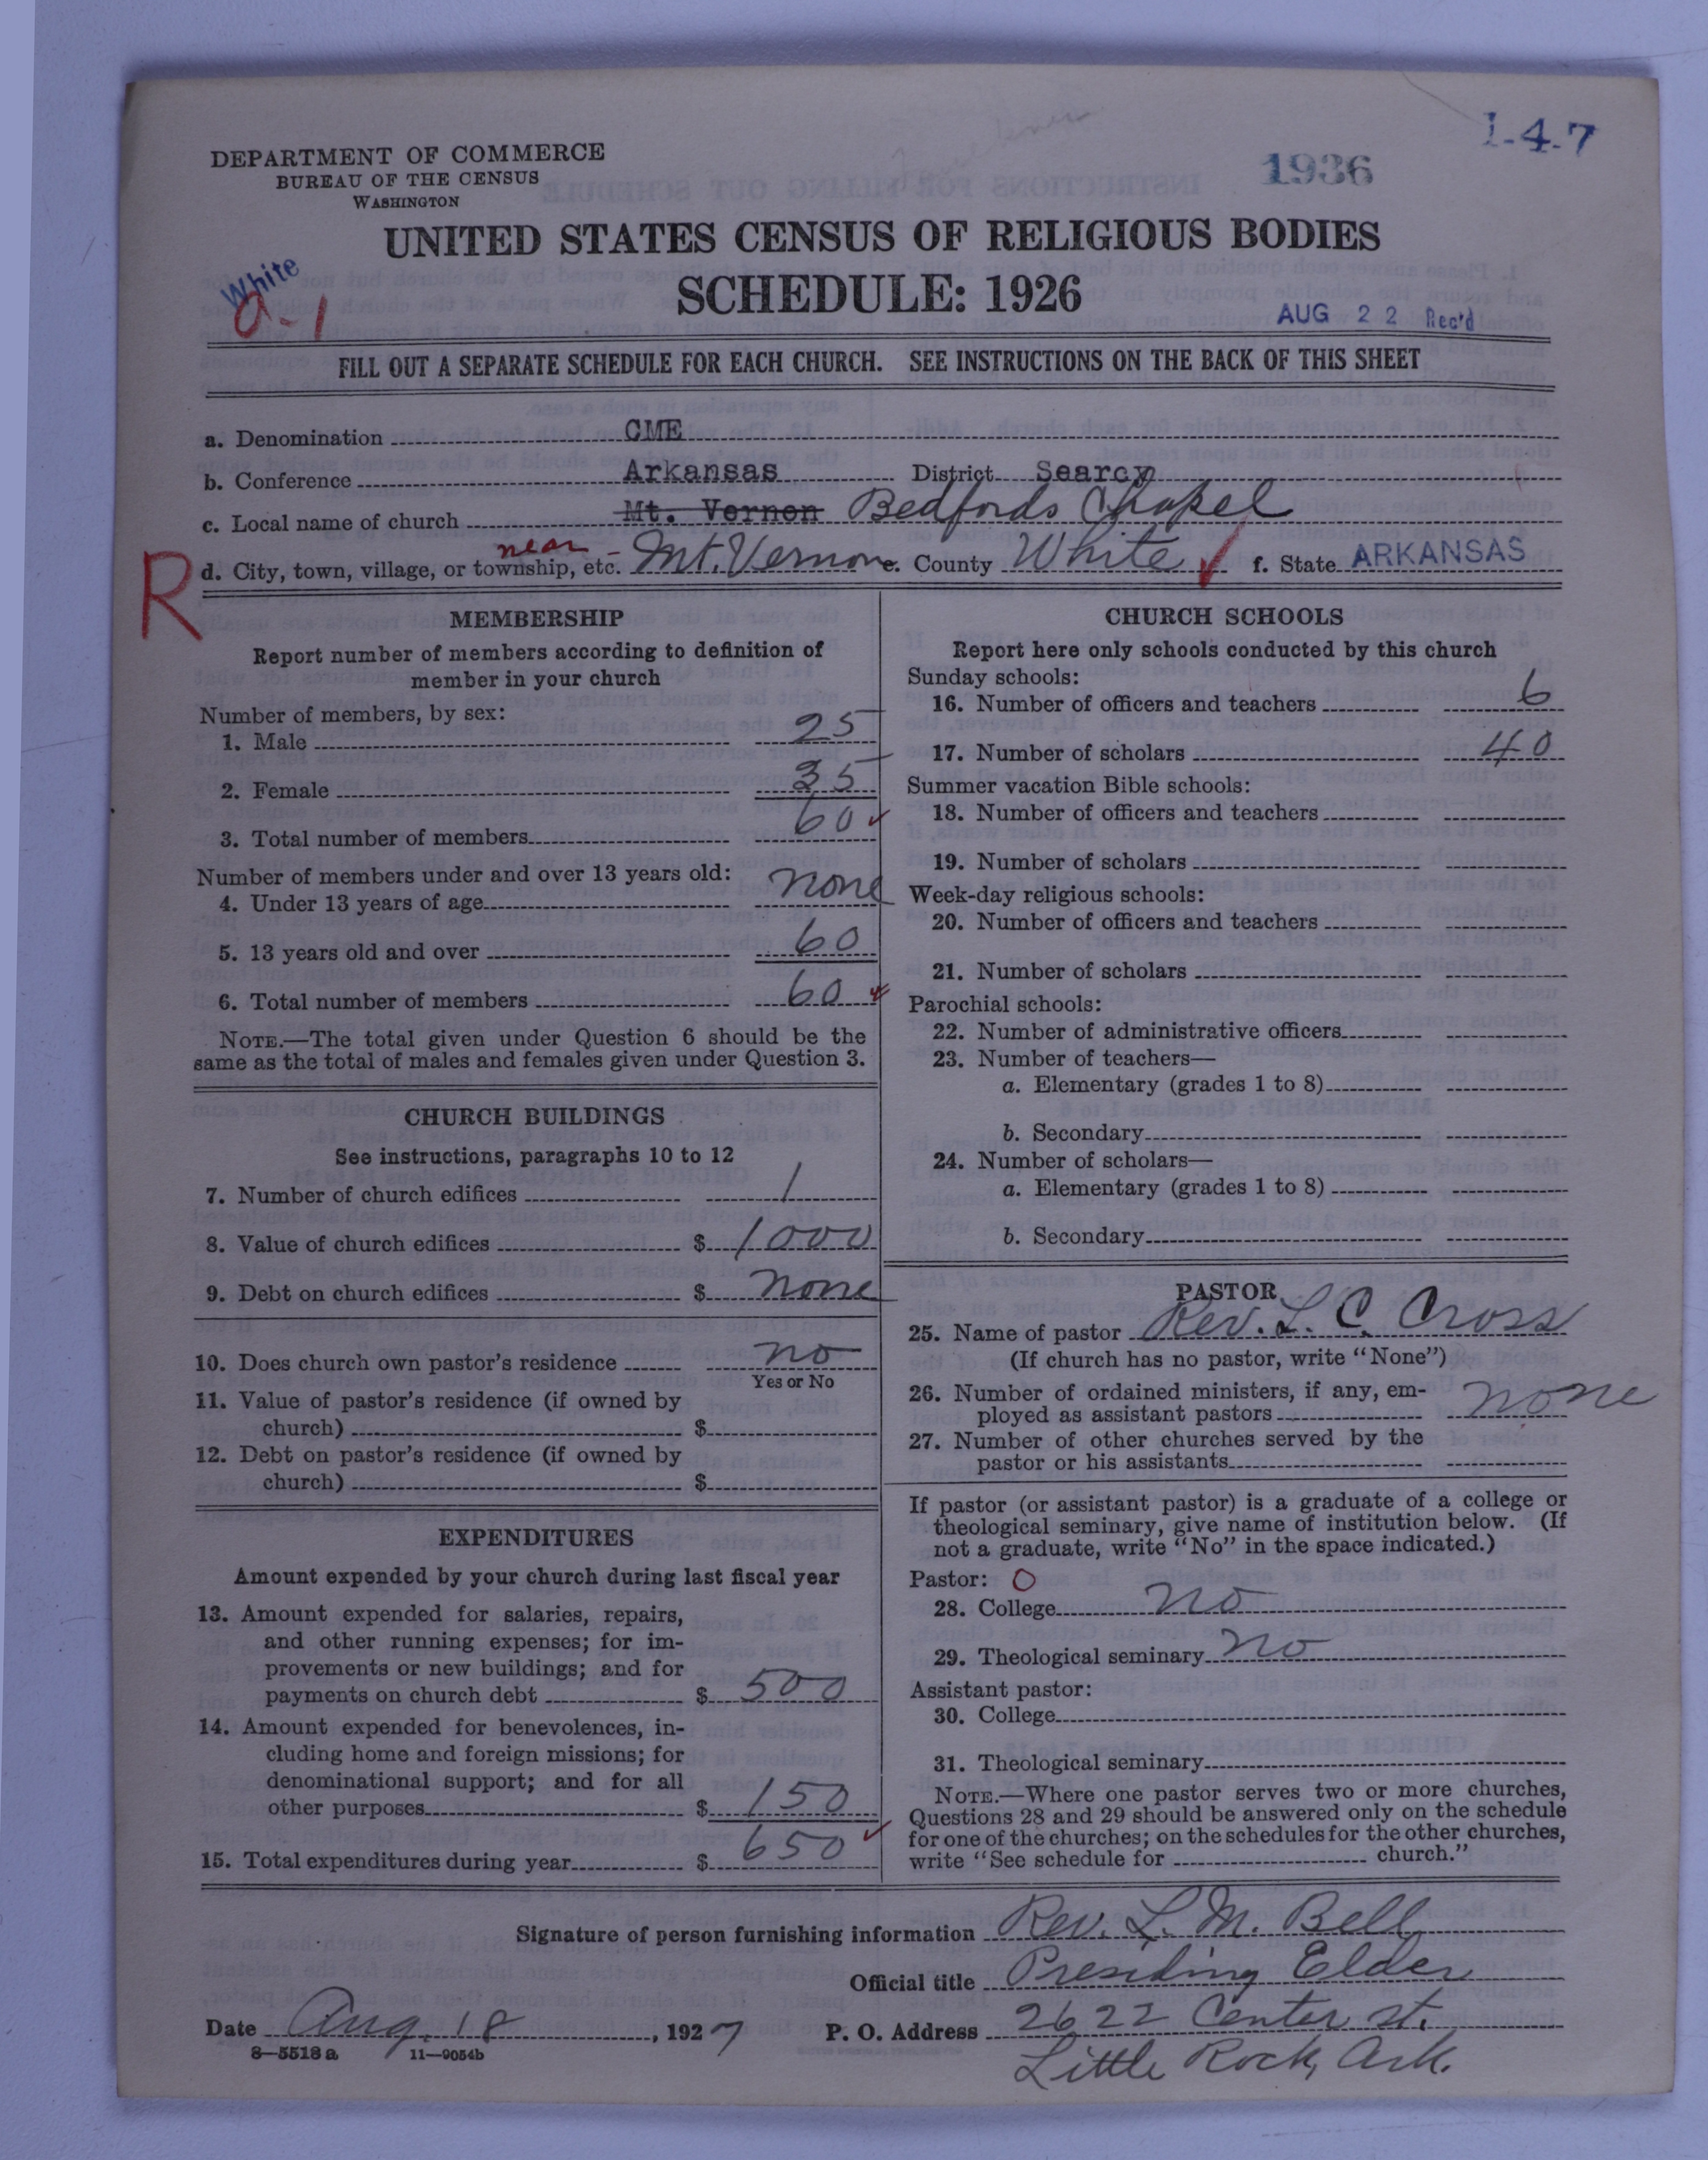 1-4-7
1936
DEPARTMENT OF COMMERCE
BUREAU OF THE CENSUS
WASHINGTON
UNITED STATES CENSUS OF RELIGIOUS BODIES
SCHEDULE: 1926
White
a-1
AUG 22 Rec'd
FILL OUT A SEPARATE SCHEDULE FOR EACH CHURCH. SEE INSTRUCTIONS ON THE BACK OF THIS SHEET
a. Denomination CME
b. Conference Arkansas District Searcy
c. Local name of church Mt. Vernon Bedfords Chapel
R
d. City, town, village, or township, etc. near - Mt. Vernon e. County White f. State ARKANSAS
MEMBERSHIP
Report number of members according to definition of
member in your church
Number of members, by sex:
1. Male 25
2. Female 35
3. Total number of members 60
Number of members under and over 13 years old:
4. Under 13 years of age none
5. 13 years old and over 60
6. Total number of members 60
NOTE.—The total given under Question 6 should be the
same as the total of males and females given under Question 3.
CHURCH BUILDINGS
See instructions, paragraphs 10 to 12
7. Number of church edifices 1
8. Value of church edifices $ 1000
9. Debt on church edifices $ none
10. Does church own pastor's residence no
Yes or No
11. Value of pastor's residence (if owned by
church) $
12. Debt on pastor's residence (if owned by
church) $
EXPENDITURES
Amount expended by your church during last fiscal year
13. Amount expended for salaries, repairs,
and other running expenses; for im-
provements or new buildings; and for
payments on church debt $ 500
14. Amount expended for benevolences, in-
cluding home and foreign missions; for
denominational support; and for all
other purposes $ 150
15. Total expenditures during year $ 650
CHURCH SCHOOLS
Report here only schools conducted by this church
Sunday schools:
16. Number of officers and teachers 6
17. Number of scholars 40
Summer vacation Bible schools:
18. Number of officers and teachers
19. Number of scholars
Week-day religious schools:
20. Number of officers and teachers
21. Number of scholars
Parochial schools:
22. Number of administrative officers
23. Number of teachers—
a. Elementary (grades 1 to 8)
b. Secondary
24. Number of scholars—
a. Elementary (grades 1 to 8)
b. Secondary
PASTOR
25. Name of pastor Rev. L. C. Cross
(If church has no pastor, write "None")
26. Number of ordained ministers, if any, em-
ployed as assistant pastors none
27. Number of other churches served by the
pastor or his assistants
If pastor (or assistant pastor) is a graduate of a college or
theological seminary, give name of institution below. (If
not a graduate, write "No" in the space indicated.)
Pastor: O
28. College no
29. Theological seminary no
Assistant pastor:
30. College
31. Theological seminary
NOTE.—Where one pastor serves two or more churches,
Questions 28 and 29 should be answered only on the schedule
for one of the churches; on the schedules for the other churches,
write "See schedule for church."
Signature of person furnishing information Rev. L. M. Bell
Official title Presiding Elder
Date Aug. 18, 1927 P. O. Address 2622 Center st.
8—5518 a 11—9054b
Little Rock, Ark.